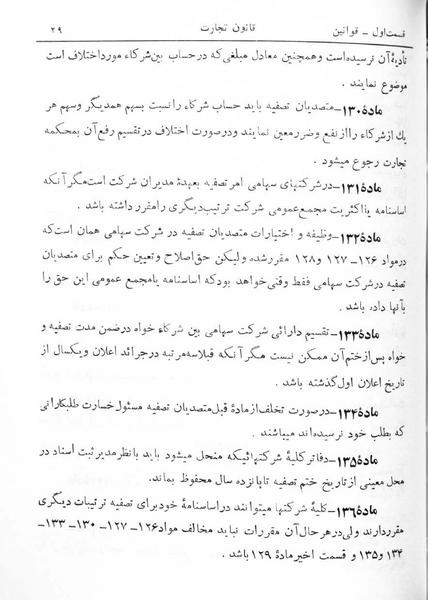 قسمت اول ـ قوانین
قانون تجارت
۲۹
تأدیهٔ آن نرسیده است و همچنین معادل مبلغی که در حساب بین شرکاء مورد اختلاف است
موضوع نمایند .
مادهٔ ۱۳۰ـ متصدیان تصفیه باید حساب شرکاء را نسبت بسهم همدیگر و سهم هر
یک از شرکاء را از نفع و ضرر معین نمایند و در صورت اختلاف در تقسیم رفع آن بمحکمه
تجارت رجوع میشود .
مادهٔ ۱۳۱ـ در شرکتهای سهامی امر تصفیه بعهدهٔ مدیران شرکت است مگر آنکه
اساسنامه یا اکثریت مجمع عمومی شرکت ترتیب دیگری را مقرر داشته باشد .
مادهٔ ۱۳۲ـ وظیفه و اختیارات متصدیان تصفیه در شرکت سهامی همان است که
در مواد ۱۲۶ ـ ۱۲۷ و ۱۲۸ مقرر شده ولیکن حق اصلاح و تعیین حکم برای متصدیان
تصفیه در شرکت سهامی فقط وقتی خواهد بود که اساسنامه یا مجمع عمومی این حق را
بآنها داده باشد .
مادهٔ ۱۳۳ـ تقسیم دارائی شرکت سهامی بین شرکاء خواه در ضمن مدت تصفیه و
خواه پس از ختم آن ممکن نیست مگر آنکه قبلا سه مرتبه در جرائد اعلان و یکسال از
تاریخ اعلان اول گذشته باشد .
مادهٔ ۱۳۴ـ در صورت تخلف از مادهٔ قبل متصدیان تصفیه مسئول خسارت طلبکارانی
که بطلب خود نرسیده اند میباشند .
مادهٔ ۱۳۵ـ دفاتر کلیهٔ شرکتهائیکه منحل میشود باید با نظر مدیر ثبت اسناد در
محل معینی از تاریخ ختم تصفیه تا پانزده سال محفوظ بماند .
مادهٔ ۱۳۶ـ کلیهٔ شرکتها میتوانند در اساسنامهٔ خود برای تصفیه ترتیبات دیگری
مقرر دارند ولی در هر حال آن مقررات نباید مخالف مواد ۱۲۶ ـ ۱۲۷ ـ ۱۳۰ ـ ۱۳۳ ـ
۱۳۴ و ۱۳۵ و قسمت اخیر مادهٔ ۱۲۹ باشد .